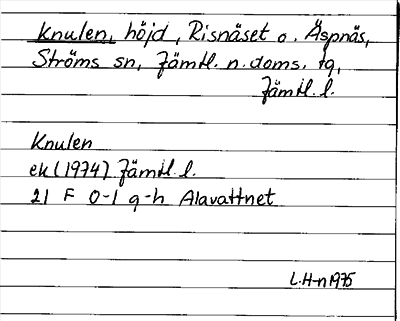 Knulen, höjd, Risnäset o. Äspnäs,
Ströms sn, Jämtl. n. doms. tg,
Jämtl. l.
Knulen
ek (1974) Jämtl. l.
21 F 0-1 g-h Alavattnet
L.H-n 1975